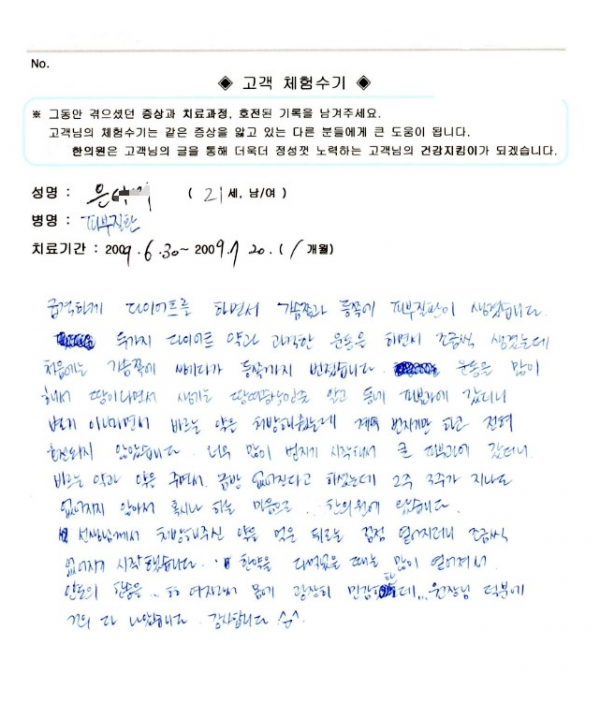 No.
◈ 고객 체험수기 ◈
※ 그동안 겪으셨던 증상과 치료과정, 호전된 기록을 남겨주세요.
고객님의 체험수기는 같은 증상을 앓고 있는 다른 분들에게 큰 도움이 됩니다.
한의원은 고객님의 글을 통해 더욱더 정성껏 노력하는 고객님의 건강지킴이가 되겠습니다.
성명 : 은 ( 21 세, 남/여 )
병명 : 피부질환
치료기간 : 2009. 6. 30 ~ 2009. 7 20. ( 1 개월)
급격하게 다이어트를 하면서 가슴쪽과 등쪽에 피부질환이 생겼습니다.
두가지 다이어트 약과 과격한 운동을 하면서 조금씩 생겼는데
처음에는 가슴쪽에 생기다가 등쪽까지 번졌습니다. 운동을 많이
해서 땀이나면서 생기는 알고 동네 피부과에 갔더니
바르는 약을 처방해줬는데 계속 번지기만 하고 전혀
호전되지 않았습니다. 너무 많이 번지기 시작해서 큰 피부과에 갔더니
바르는 약과 약을 주면서 금방 없어진다고 하셨는데 2주 3주가 지나도
없어지지 않아서 혹시나 하는 마음으로.. 한의원에 왔습니다.
선생님께서 처방해주신 약을 먹은 뒤로는 점점 옅어지더니 조금씩
없어지기 시작했습니다. 한약을 다먹었을 때는 많이 옅어져서
몸에 굉장히 민감한데... 원장님 덕분에
거의 다 나았습니다. 감사합니다 ^^